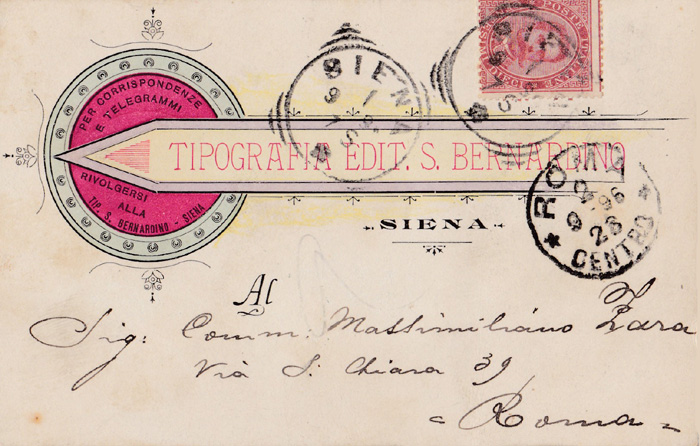 PER CORRISPONDENZE
E TELEGRAMMI
RIVOLGERSI
ALLA
TIP. S. BERNARDINO - SIENA
TIPOGRAFIA EDIT. S. BERNARDINO
SIENA
SIENA
ROMA
96
26
CENTRO
Al
Sig: Comm. Massimiliano Zara
Via S. Chiara 39
Roma